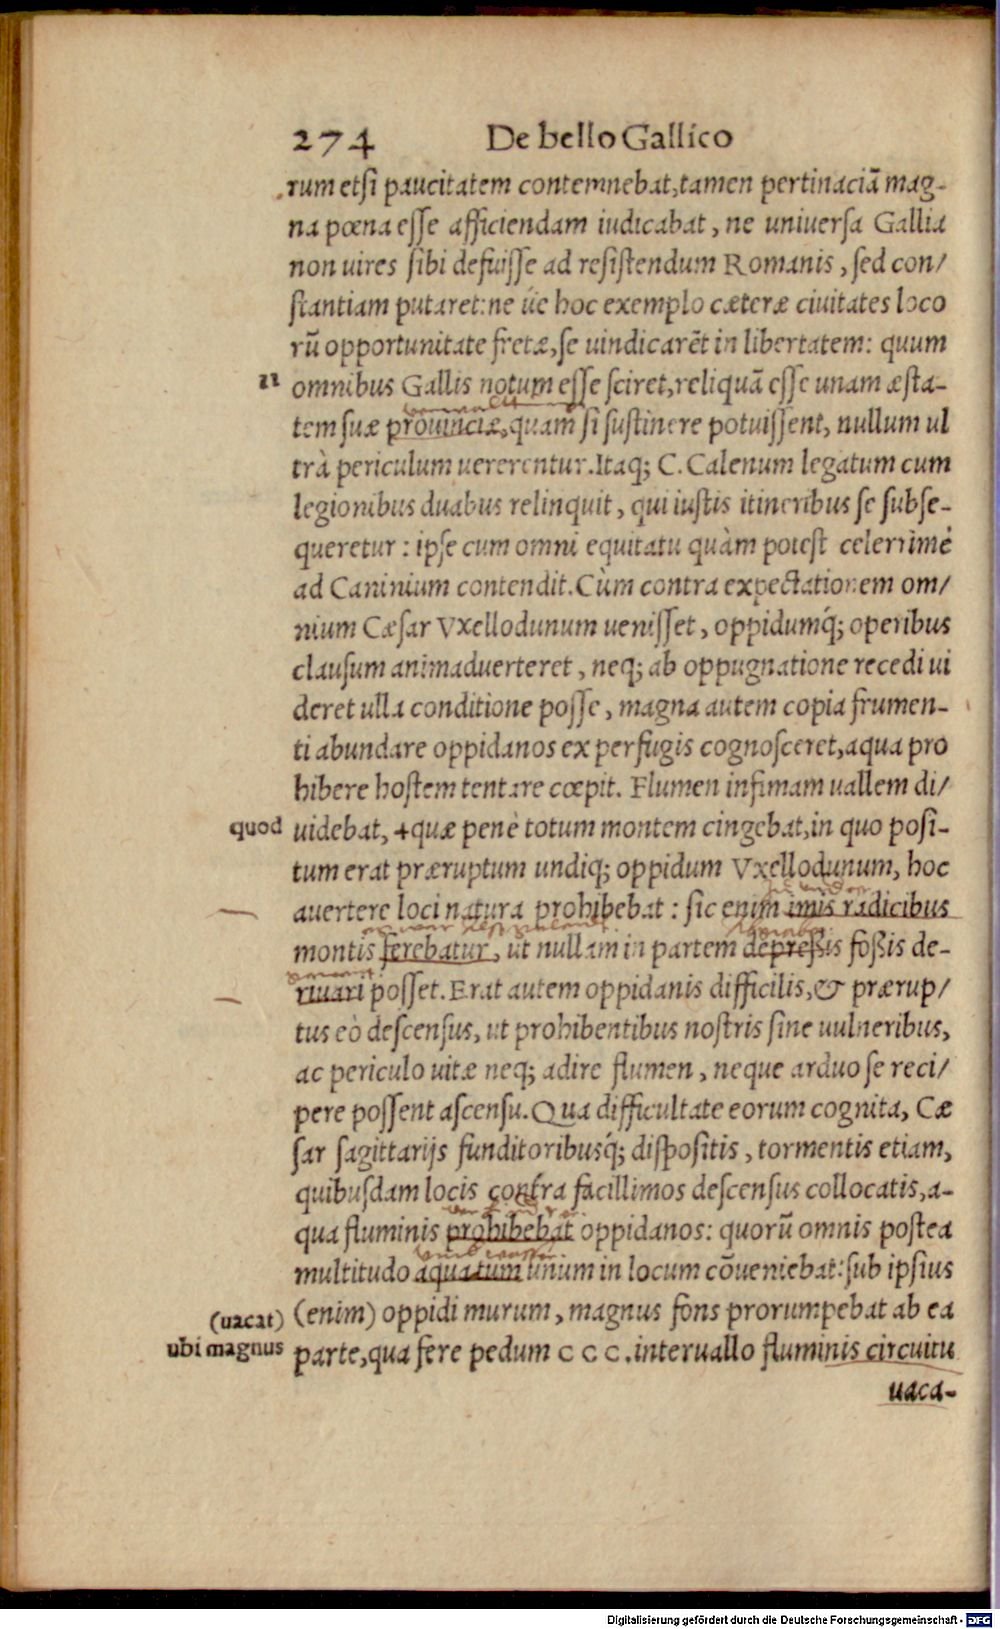 274 De bello Gallico
rum etsi paucitatem contemnebat, tamen pertinaciã mag-
na pœna esse afficiendam iudicabat, ne uniuersa Gallia
non uires sibi defuisse ad resistendum Romanis, sed con/
stantiam putaret: ne úe hoc exemplo cæteræ ciuitates loco
rũ opportunitate fretæ, se uindicarẽt in libertatem: quum
omnibus Gallis notum esse sciret, reliquã esse unam æsta-
tem suæ prouinciæ, quam si sustinere potuissent, nullum ul
trà periculum uererentur. Itaq; C. Calenum legatum cum
legionibus duabus relinquit, qui iustis itineribus se subse-
queretur: ipse cum omni equitatu quàm potest celerrimè
ad Caninium contendit. Cùm contra expectationem om/
nium Cæsar Vxellodunum uenisset, oppidumq́; operibus
clausum animaduerteret, neq; ab oppugnatione recedi ui
deret ulla conditione posse, magna autem copia frumen-
ti abundare oppidanos ex perfugis cognosceret, aqua pro
hibere hostem tentare cœpit. Flumen infimam uallem di/
quod uidebat, +quæ penè totum montem cingebat, in quo posi-
tum erat præruptum undiq; oppidum Vxellodunum, hoc
auertere loci natura prohibebat: sic enim imis radicibus
montis ferebatur, ut nullam in partem depreßis foßis de-
riuari posset. Erat autem oppidanis difficilis, & prærup/
tus eò descensus, ut prohibentibus nostris sine uulneribus,
ac periculo uitæ neq; adire flumen, neque arduo se reci/
pere possent ascensu. Qua difficultate eorum cognita, Cæ
sar sagittarijs funditoribusq́; dispositis, tormentis etiam,
quibusdam locis contra facillimos descensus collocatis, a-
qua fluminis prohibebat oppidanos: quorũ omnis postea
multitudo aquatum unum in locum cõueniebat: sub ipsius
(uacat) (enim) oppidi murum, magnus fons prorumpebat ab ea
ubi magnus parte, qua fere pedum CCC. interuallo fluminis circuitu
uaca-
Digitalisierung gefördert durch die Deutsche Forschungsgemeinschaft - DFG